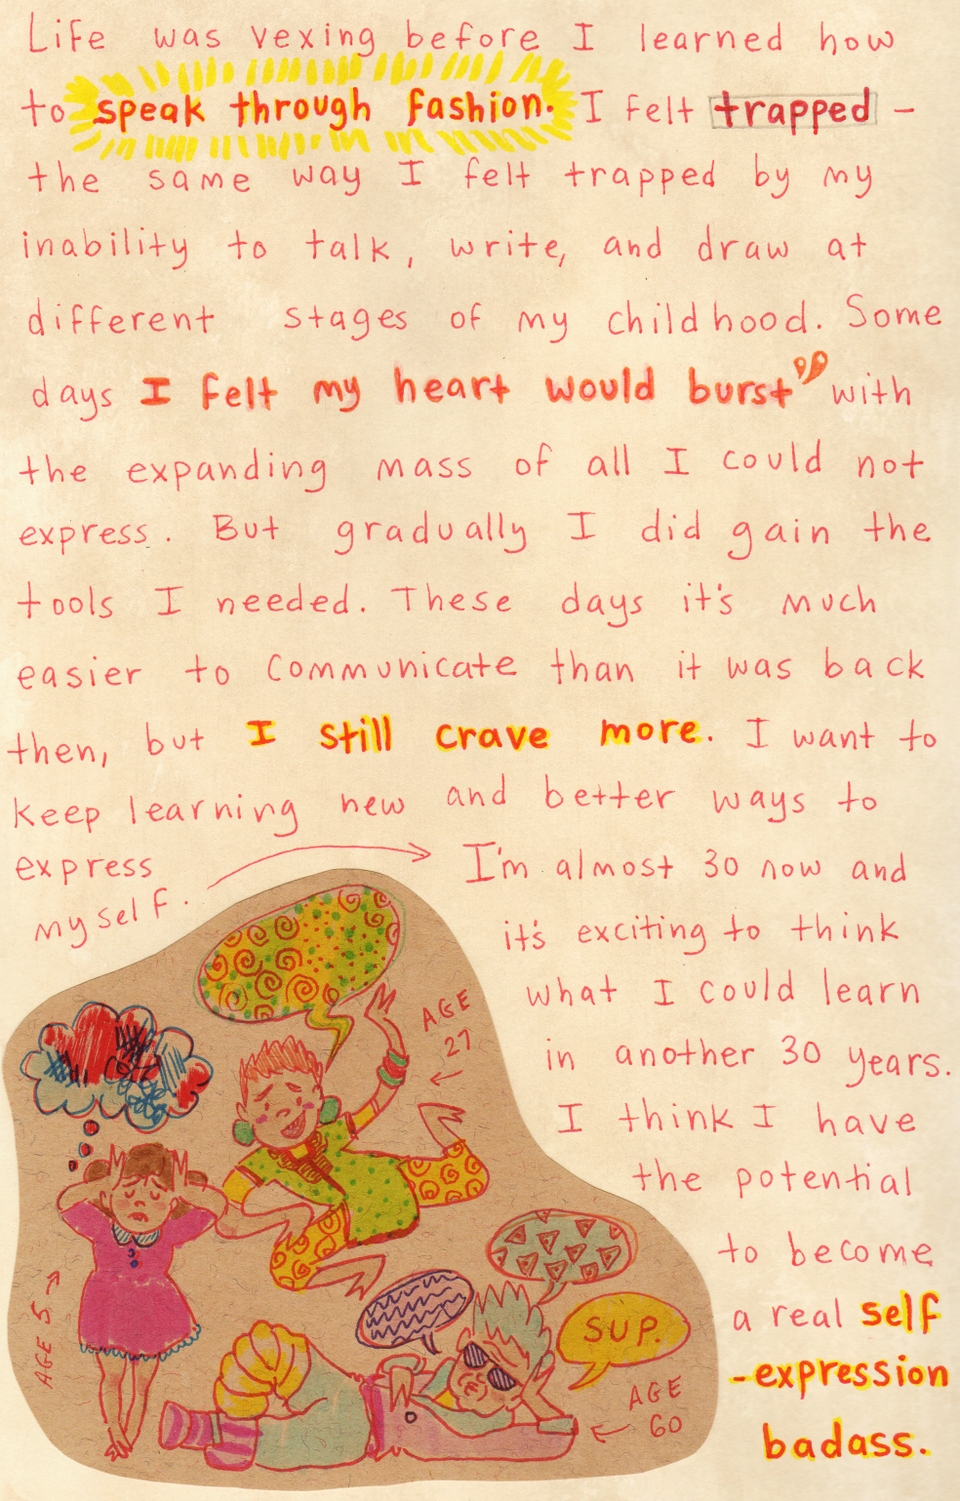 Life was vexing before I learned how
to speak through fashion. I felt trapped -
the same way I felt trapped by my
inability to talk, write, and draw at
different stages of my childhood. Some
days I felt my heart would burst with
the expanding mass of all I could not
express. But gradually I did gain the
tools I needed. These days it's much
easier to communicate than it was back
then, but I still crave more. I want to
keep learning new and better ways to
express
myself.
I'm almost 30 now and
it's exciting to think
what I could learn
in another 30 years.
I think I have
the potential
to become
a real self
-expression
badass.
AGE
27
AGE 5
SUP.
AGE
60